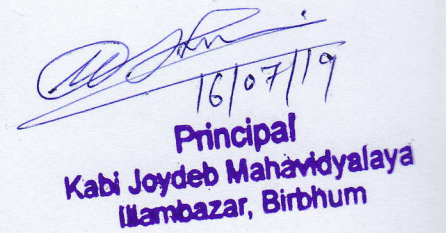 16/07/19
Principal
Kabi Joydeb Mahavidyalaya
Illambazar, Birbhum